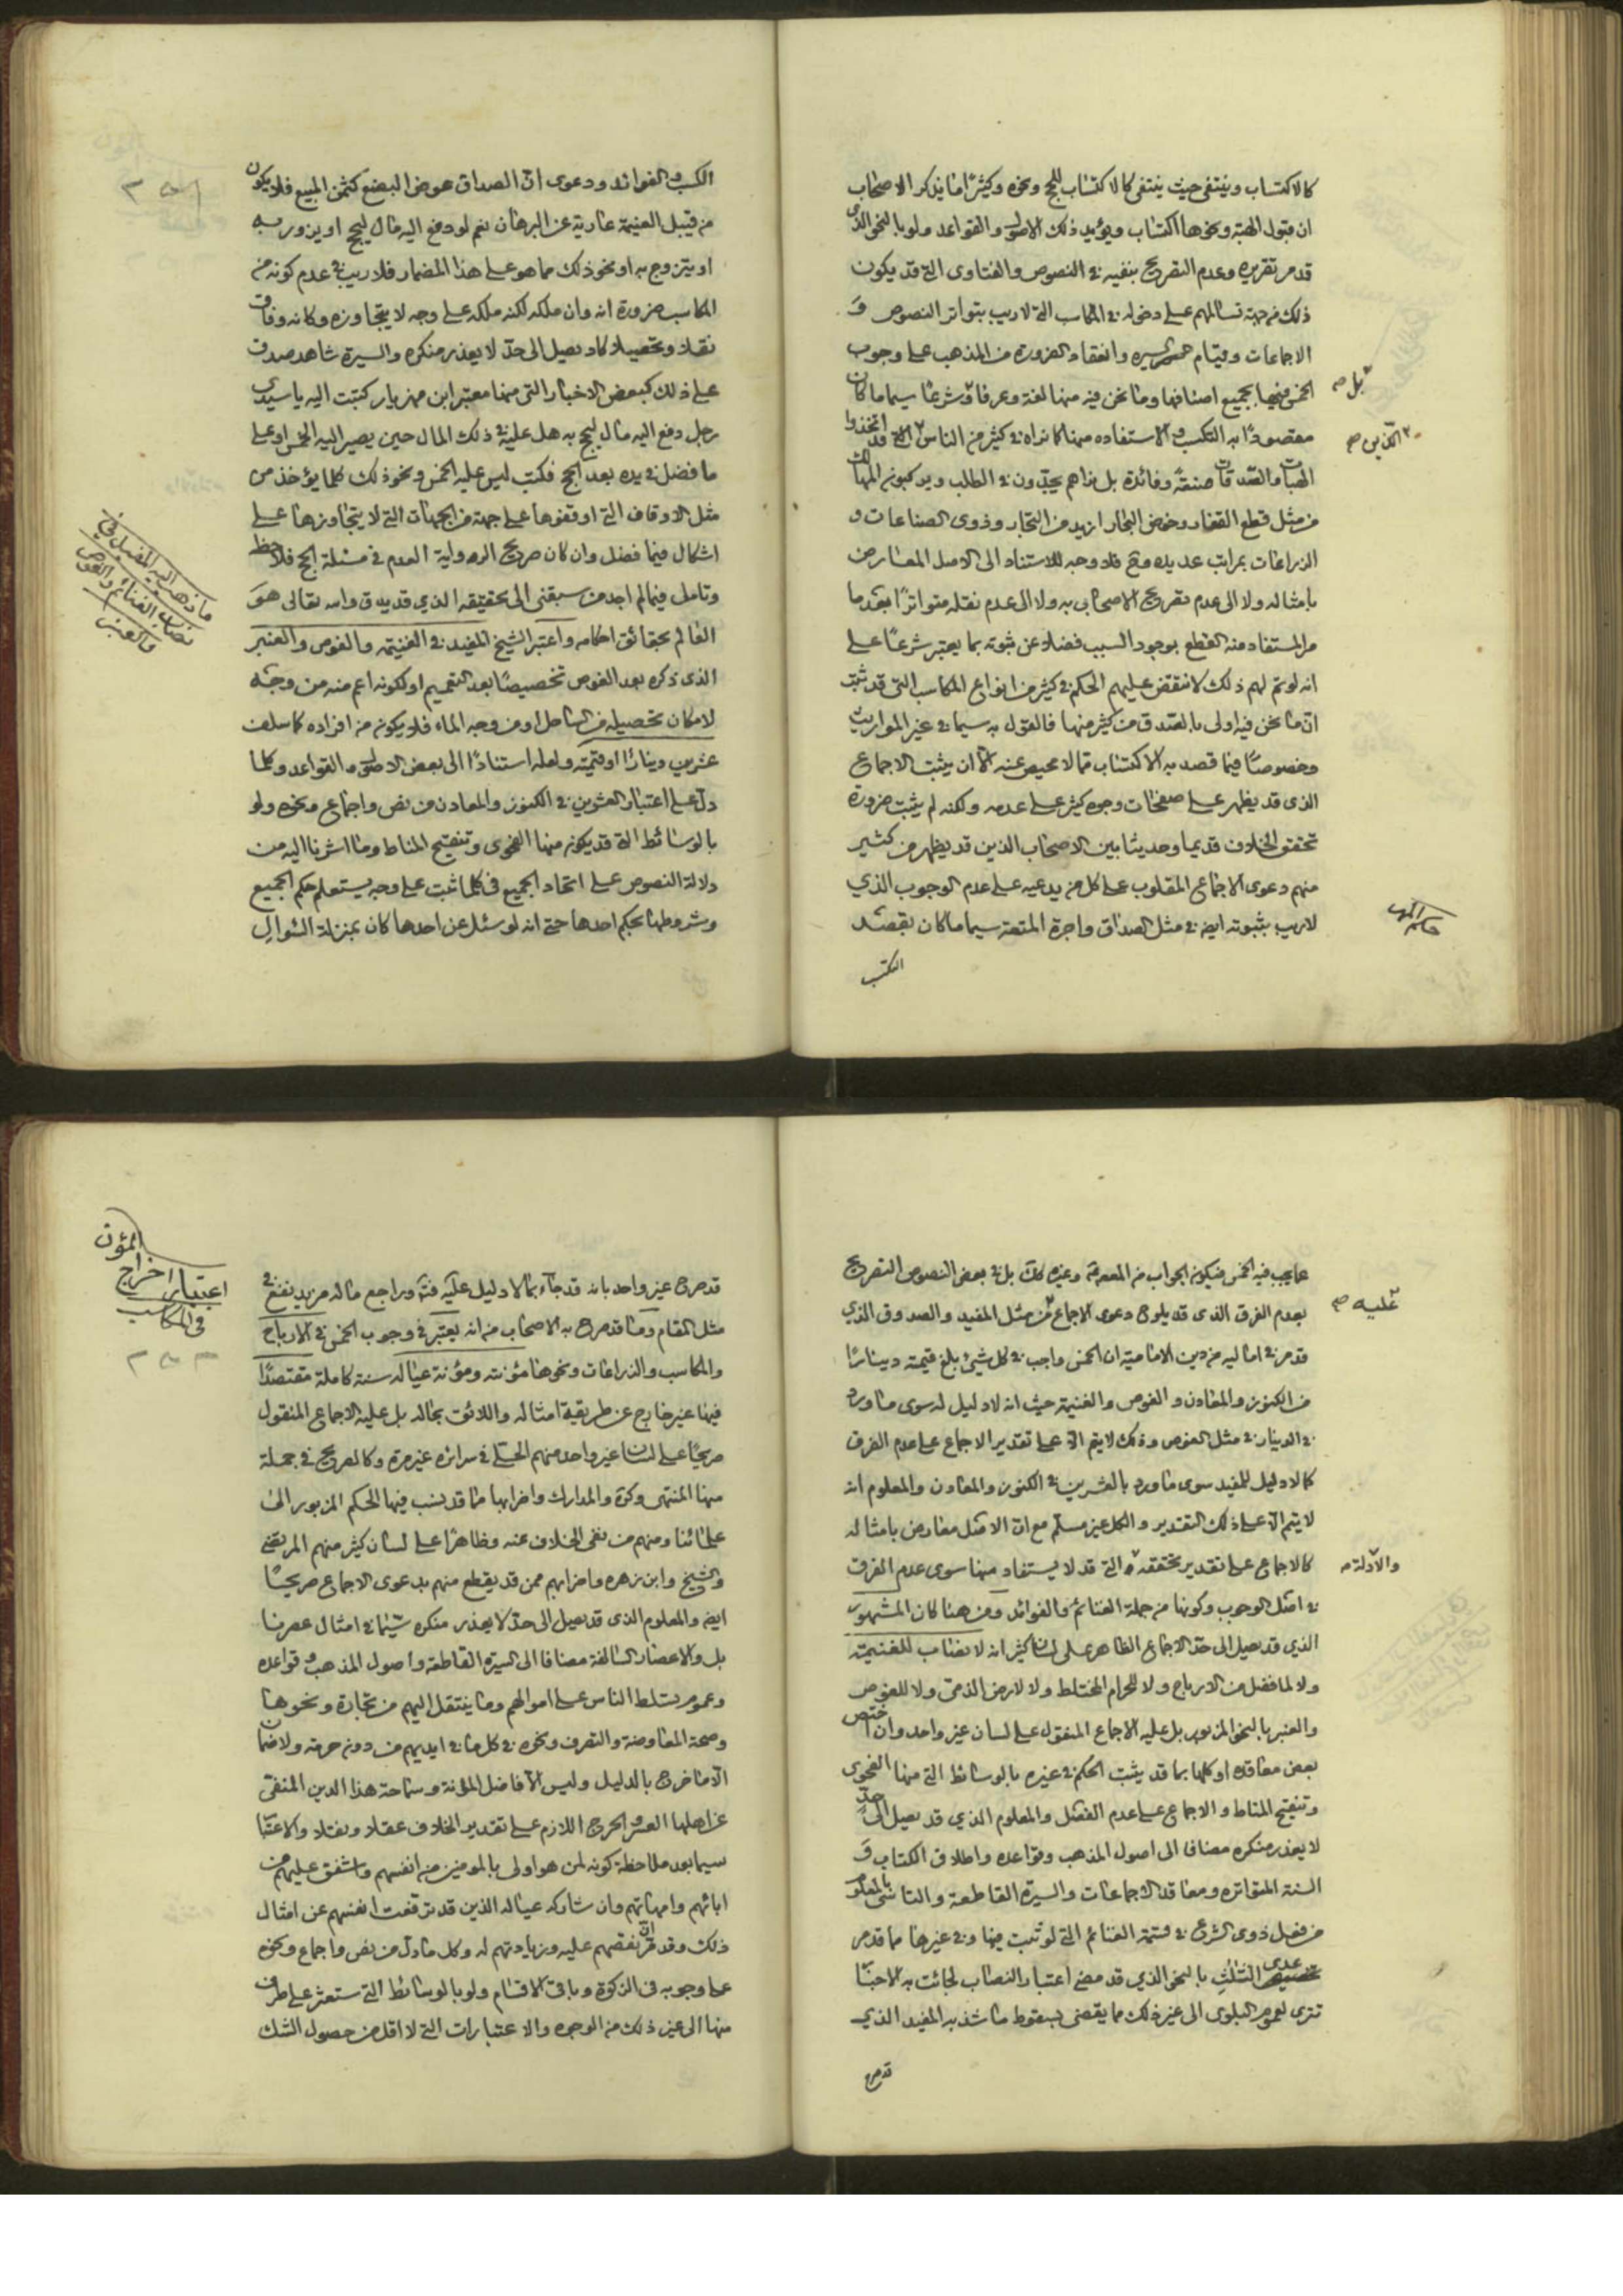 كالاكتساب وينتفى حيث ينتفى كالاكتساب للحج ونحوه وكثيرا ما يذكر الاصحاب
ان قبول الهبة ونحوها اكتساب ويؤيد ذلك الاصول والقواعد ولو بالنحو الذى
قد مر تقريره وعدم التصريح بنفيه في النصوص والفتاوى التي قد يكون
ذلك من جهة تسالمهم على دخوله في المكاسب التي لا ريب بتواتر النصوص و
الاجماعات وقيام السيرة وانعقاد الضرورة من المذهب على وجوب
الخمس فيها بجميع اصنافها وما نحن فيه منها لغة وعرفا وشرعا سيما ما كان
بل صح
مقصودا به التكسب والاستفاده منها كما نراه في كثير من الناس قد اتخذوا
الذين صح
الهبات والصدقات صنعة وفائدة بل نراهم يجدون في الطلب ويركبون المهالك
من مثل قطع القفار وخوض البحار ازيد من التجار وذوى الصناعات و
الزراعات بمراتب عديده وح فلا وجه للاستناد الى الاصل المعارض
بامثاله ولا الى عدم تصريح الاصحاب به ولا الى عدم نقله متواترا بعد ما
مر المستفاد منه القطع بوجود السبب فضلا عن ثبوته بما يعتبر شرعا على
انه لو تم لهم ذلك لانتقض عليهم الحكم في كثير من انواع المكاسب التي قد ثبت
ان ما نحن فيه اولى بالصدق من كثير منها فالقول به سيما في غير المواريث
وخصوصا فيما قصد به الاكتساب مما لا محيص عنه الا ان يثبت الاجماع
الذى قد يظهر على صفحات وجوه كثير على عدمه ولكنه لم يثبت ضرورة
تحقق الخلاف قديما وحديثا بين الاصحاب الذين قد يظهر من كثير
منهم دعوى الاجماع المقلوب على كل من يدعيه على عدم الوجوب الذي
لا ريب بثبوته ايضا في مثل الصداق واجرة المتعة سيما ما كان بقصد
حكم المهر
التكسب
الكسب والفوائد ودعوى ان الصداق عوض البضع كثمن المبيع فلا يكون
من قبيل الغنيمة عارية عن البرهان نعم لو دفع اليه مال ليحج او يزور به
او يتزوج به او نحو ذلك مما هو على هذا المضمار فلا ريب في عدم كونه من
المكاسب ضرورة انه وان ملكه لكنه ملكه على وجه لا يتجاوزه وكانه وفاق
نقلا وتحصيلا كاد يصل الى حد لا يعذر منكره والسيرة شاهد صدق
على ذلك كبعض الاخبار التي منها معتبر ابن مهزيار كتبت اليه يا سيدي
رجل دفع اليه مال ليحج به هل عليه في ذلك المال حين يصير اليه الخمس او على
ما فضل في يده بعد الحج فكتب ليس عليه الخمس ونحو ذلك كلما يؤخذ من
مثل الاوقاف التي اوقفوها على جهة من الجهات التي لا يتجاوزها على
اشكال فيما فضل وان كان صريح الرواية العدم في مسئلة الحج فلاحظ
وتامل فيما لم اجد من سبقنى الى تحقيقه الذي قد يدق والله تعالى هو
العالم بحقائق احكامه واعتبر الشيخ المفيد في الغنيمة والغوص والعنبر
ما ذهب اليه المفيد في
نصاب الغنائم والغوص
والعنبر
الذى ذكره بعد الغوص تخصيصا بعد التعميم او لكونه اعم منه من وجه
لامكان تحصيله من الساحل او من وجه الماء فلا يكون من افراده كما سلف
عشرين دينارا او قيمته ولعله استنادا الى بعض الاصول والقواعد وكلما
دل على اعتبار العشرين في الكنوز والمعادن من نص واجماع ونحوه ولو
بالوسائط التي قد يكون منها الفحوى وتنقيح المناط وما اشرنا اليه من
دلالة النصوص على اتحاد الجميع في كلما ثبت على وجه يستعلم حكم الجميع
وشروطها بحكم احدها حتى انه لو سئل عن احدها كان بمنزلة السؤال
عما يجب فيه الخمس فيكون الجواب من المعرفة وغيره كل بل في بعض النصوص التصريح
بعدم الفرق الذى قد يلوح دعوى الاجماع من مثل المفيد والصدوق الذي
عليه صح
قد مر في اماليه من دين الامامية ان الخمس واجب في كل شئ بلغ قيمته دينارا
من الكنوز والمعادن والغوص والغنيمة حيث انه لا دليل له سوى ما ورد
في الدينار في مثل الغوص وذلك لا يتم الا على تقدير الاجماع على عدم الفرق
كما لا دليل للمفيد سوى ما ورد بالعشرين في الكنوز والمعادن والمعلوم انه
لا يتم الا على ذلك التقدير والكل غير مسلم مع ان الاصل معارض بامثاله
كالاجماع على تقدير تحققه التي قد لا يستفاد منها سوى عدم الفرق
والادلة صح
في اصل الوجوب وكونها من جملة الغنائم والفوائد ومن هنا كان المشهور
الذي قد يصل الى حد الاجماع الظاهر على لسان كثير انه لا نصاب للغنيمة
ولا لما فضل من الارباح ولا للحرام المختلط ولا لارض الذمى ولا للغوص
والعنبر بالنحو المزبور بل عليه الاجماع المنقول على لسان غير واحد وان اختص
بعض معاقده او كلها بما قد يثبت الحكم في غيره بالوسائط التي منها الفحوى
وتنقيح المناط والاجماع على عدم الفصل والمعلوم الذي قد يصل الى حد
لا يعذر منكره مضافا الى اصول المذهب وقواعده واطلاق الكتاب و
السنة المتواتره ومعاقد الاجماعات والسيرة القاطعة والتاسى بالمعلوم
من فعل ذوى الشرع في قسمة الغنائم التي لو ثبت فيها وفي غيرها ما قد مر
عدى الثلث بالنحو الذي قد مضى اعتبار النصاب لجائت به الاخبار
تترى لعموم البلوى الى غير ذلك مما يقضى بسقوط ما شذ به المفيد الذي
قد صرح
قد صرح غير واحد بانه قد جاء بما لا دليل عليه فتدبر وراجع ما له مزيد نفع في
المؤن
اعتبار اخراج
في المكاسب
٢٥٣
مثل المقام ومما قد صرح به الاصحاب من انه يعتبر في وجوب الخمس في الارباح
والمكاسب والزراعات ونحوها مؤنته ومؤنة عياله سنة كاملة مقتصدا
فيها غير خارج عن طريقة امثاله واللائق بحاله بل عليه الاجماع المنقول
صريحا على لسان غير واحد منهم الحلي في سرائره غير مرة وكالصريح في جملة
منها المنتهى وكرة والمدارك واضرابها مما قد ينسب فيها الحكم المزبور الى
علمائنا ومنهم من نفى الخلاف عنه وظاهرا على لسان كثير منهم المرتضى
والشيخ وابن زهره واضرابهم ممن قد يقطع منهم بدعوى الاجماع صريحا
ايضا والمعلوم الذى قد يصل الى حد لا يعذر منكره سيما في امثال عصرنا
بل والاعصار السالفة مضافا الى السيرة القاطعة واصول المذهب وقواعده
وعموم تسلط الناس على اموالهم وما ينتقل اليهم من تجارة ونحوها
وصحة المعاوضة والتصرف ونحوه في كل ما في ايديهم من دون حرمة ولا ضمان
الا ما خرج بالدليل وليس الا فاضل المؤنة وسماحة هذا الدين المنفى
عن اهلها العسر والحرج اللازم على تقدير الخلاف عقلا ونقلا والاعتبار
سيما بعد ملاحظة كونه لمن هو اولى بالمومنين من انفسهم واشفق عليهم من
ابائهم وامهاتهم وان شاركه عياله الذين قد ترفعت انفسهم عن امثال
ذلك وقد قر ان نقصهم عليه وزيادتهم له وكل ما دل من نص واجماع ونحوه
على وجوبه في الزكوة وباقى الاقسام ولو بالوسائط التي ستعثر على طرف
منها الى غير ذلك من الوجوه والاعتبارات التي لا اقل من حصول الشك